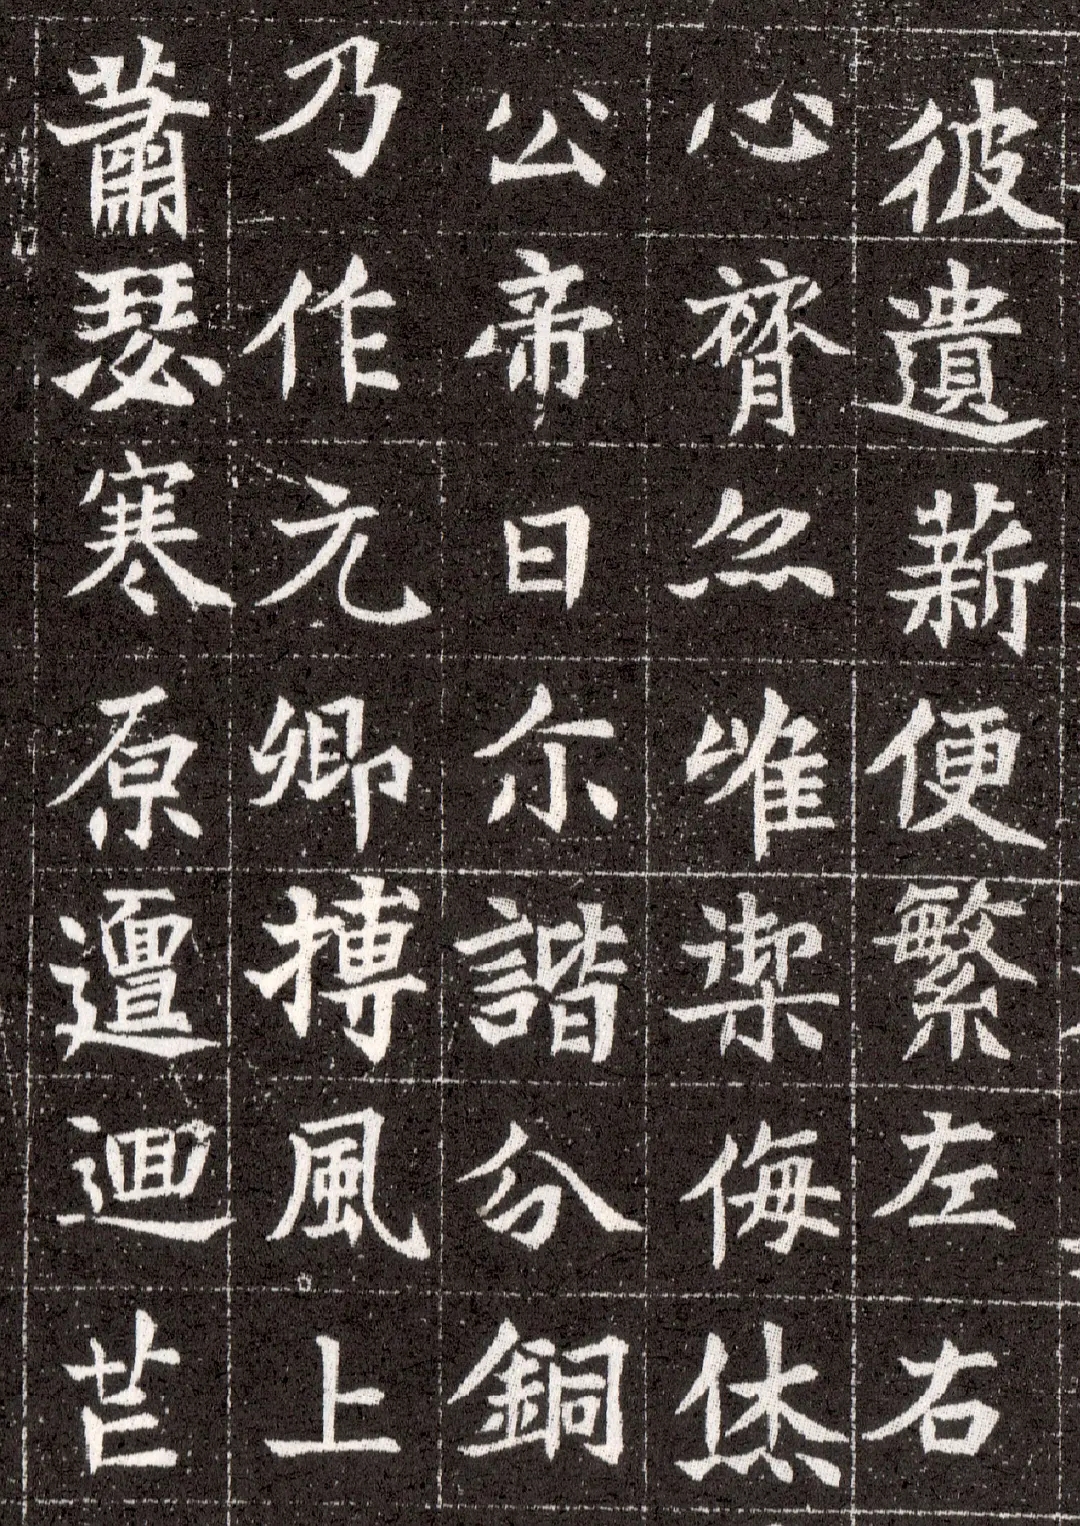 彼遺薪便繁左右
心膂唯禦侮烋
公帝曰尒諧分銅
乃作元卿搏風上
蕭瑟寒原邅迴芒